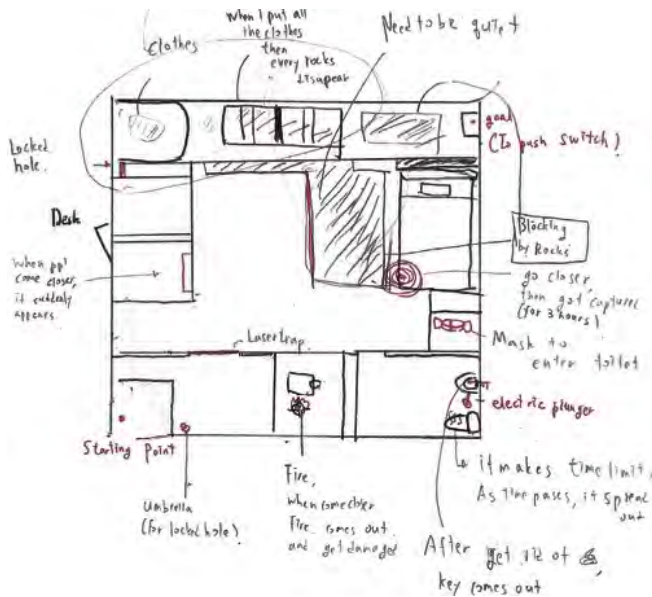 Clothes
When I put all
the clothes
then
every rocks
disapear
Need to be quiet
goal
(To push switch)
Locked
hole.
Desk
When ppl
come closer,
it suddenly
appears
Blocking
by Rocks
go closer,
then got captured
(for 3 hours)
Mask to
enter toilet
Laser trap
electric plunger
Starting Point
Umbrella
(for locked hole)
Fire,
when come closer
Fire comes out
and get damaged
it makes time limit,
As time passes, it spread
out
After get rid of
key comes out